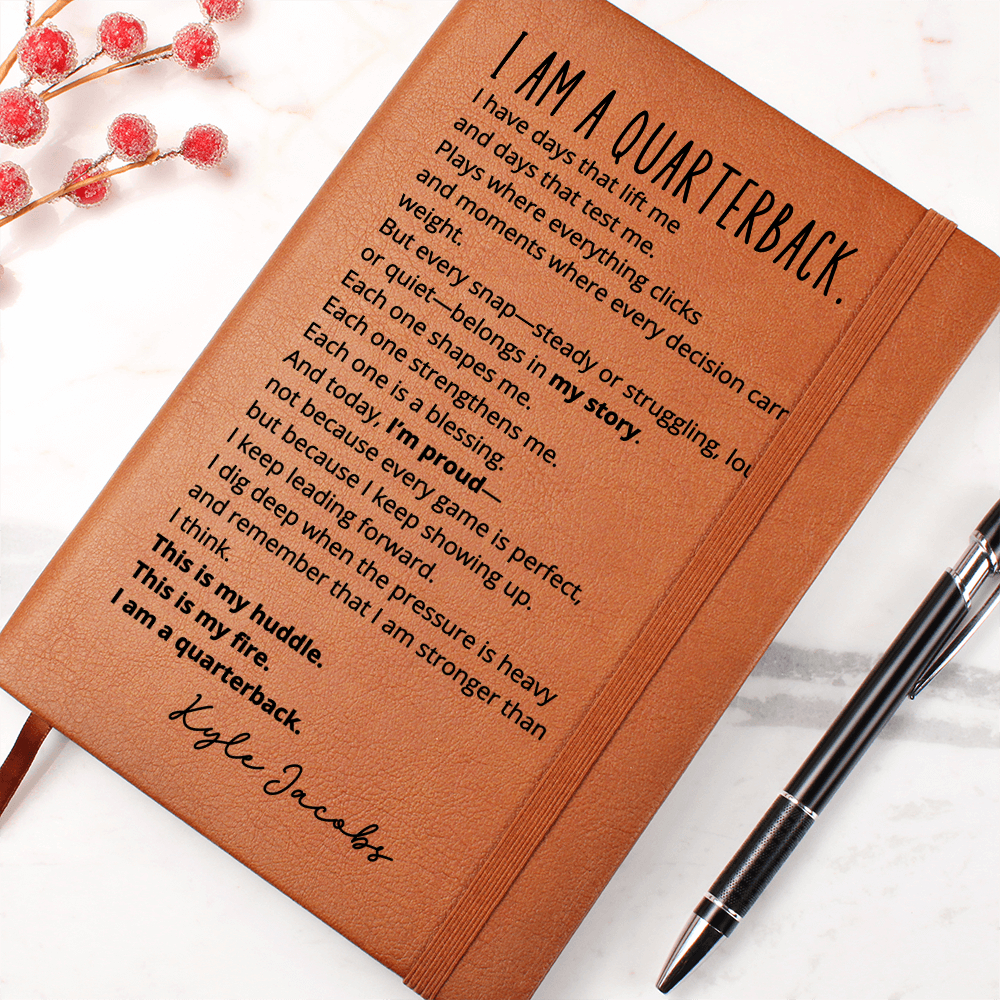 I AM A QUARTERBACK.
I have days that lift me
and days that test me.
Plays where everything clicks
and moments where every decision carr
weight.
But every snap—steady or struggling, lou
or quiet—belongs in my story.
Each one shapes me.
Each one strengthens me.
Each one is a blessing.
And today, I'm proud—
not because every game is perfect,
but because I keep showing up.
I keep leading forward.
I dig deep when the pressure is heavy
and remember that I am stronger than
I think.
This is my huddle.
This is my fire.
I am a quarterback.
Kyle Jacobs